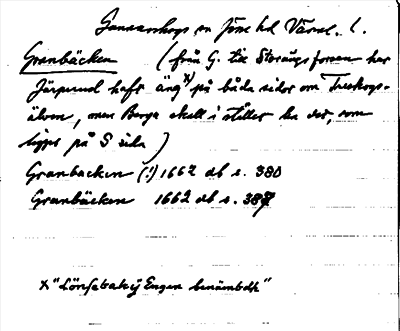 Gunnarskogs sn Jösse hd Värml. l.
Granbäcken (från G. till Storängsforsen har
Järperud haft äng x) på båda sidor om Treskogs-
älven, men Berga skall i stället ha det, som
ligger på S sida)
Granbacken (!) 1662 db s. 380
Granbäcken 1662 db s. 387
x "Löns Engen benämbdh"